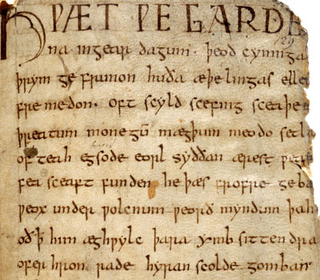 HǷÆT ǷE GARDE
na ingear dagum · þeod cyninga
þrym ge frunon huða æþelingas elle
fremedon · oft scyld scefing sceaþe
þreatum monegū mægþum meodo setla
of teah egsode eorl syððan ærest ƿear
fea sceaft funden he þæs frofre geba
ƿeox under ƿolcnum ƿeorð myndum þah
oð þ̄ him æghƿylc þara ymb sittendra
ofer hron rade hyran scolde gomban